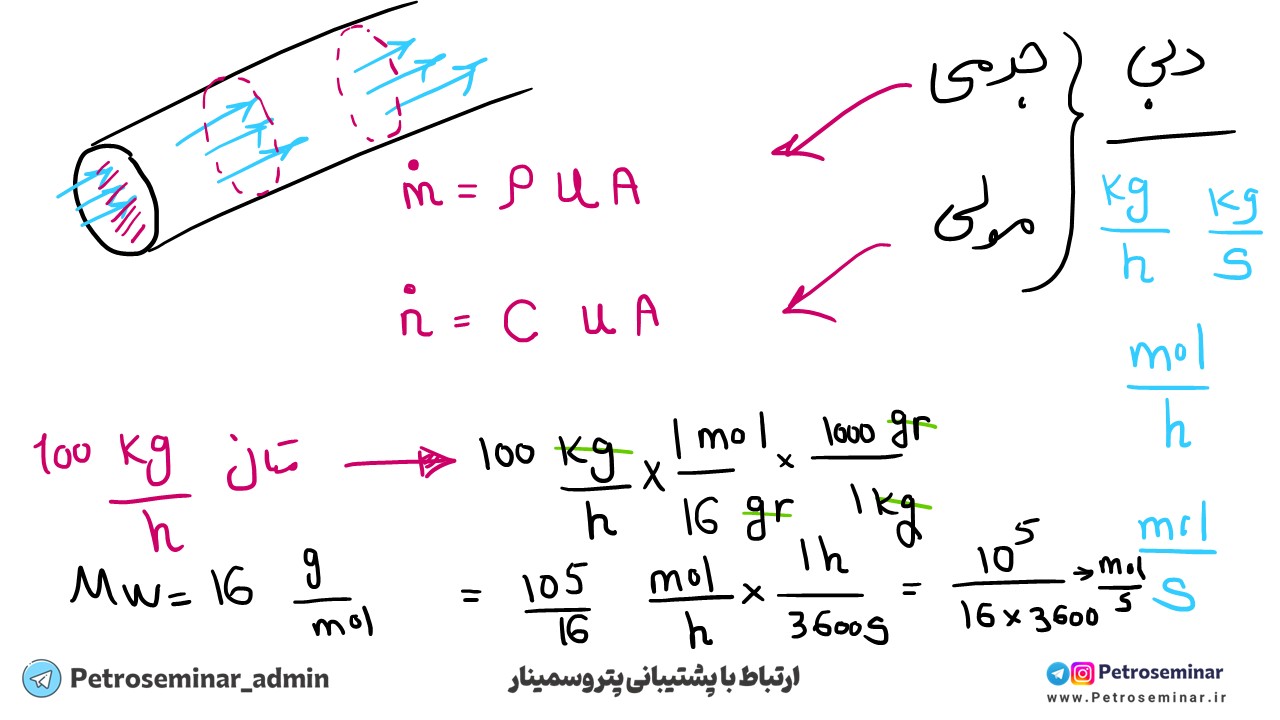 دبی
جرمی
مولی
kg/h kg/s
mol/h
mol/s
ṁ = ρ u A
ṅ = C u A
100 kg/h متان → 100 kg/h × 1 mol/16 gr × 1000 gr/1 kg
Mw = 16 g/mol
= 10^5/16 mol/h × 1h/3600s = 10^5/16 × 3600 → mol/s
Petroseminar_admin
ارتباط با پشتیبانی پتروسمینار
Petroseminar
www.Petroseminar.ir